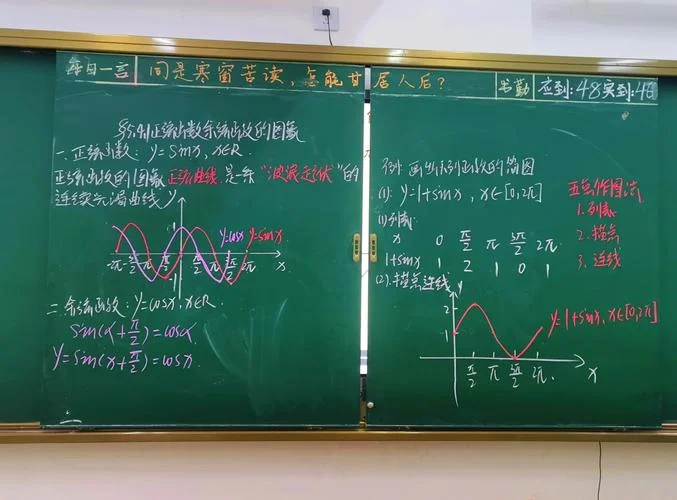 每日一言 同是寒窗苦读,怎能甘居人后? 出勤 应到:48 实到:46
§5.4.1正弦函数余弦函数的图象
一.正弦函数: y=sinx, x∈R.
正弦函数的图象 正弦曲线 是一条"波浪起伏"的
连续光滑曲线
y
1
y=cosx y=sinx
-2π -3π/2 -π -π/2 π/2 π 3π/2 2π x
-1
二.余弦函数: y=cosx, x∈R.
sin(α+π/2)=cosα
y=sin(x+π/2)=cosx.
例: 画出下列函数的简图
(1): y=1+sinx, x∈[0,2π]
(1)列表
x 0 π/2 π 3π/2 2π
1+sinx 1 2 1 0 1
(2).描点连线
y
2
1
y=1+sinx, x∈[0,2π]
π/2 π 3π/2 2π. x
五点作图法
1.列表
2.描点
3.连线